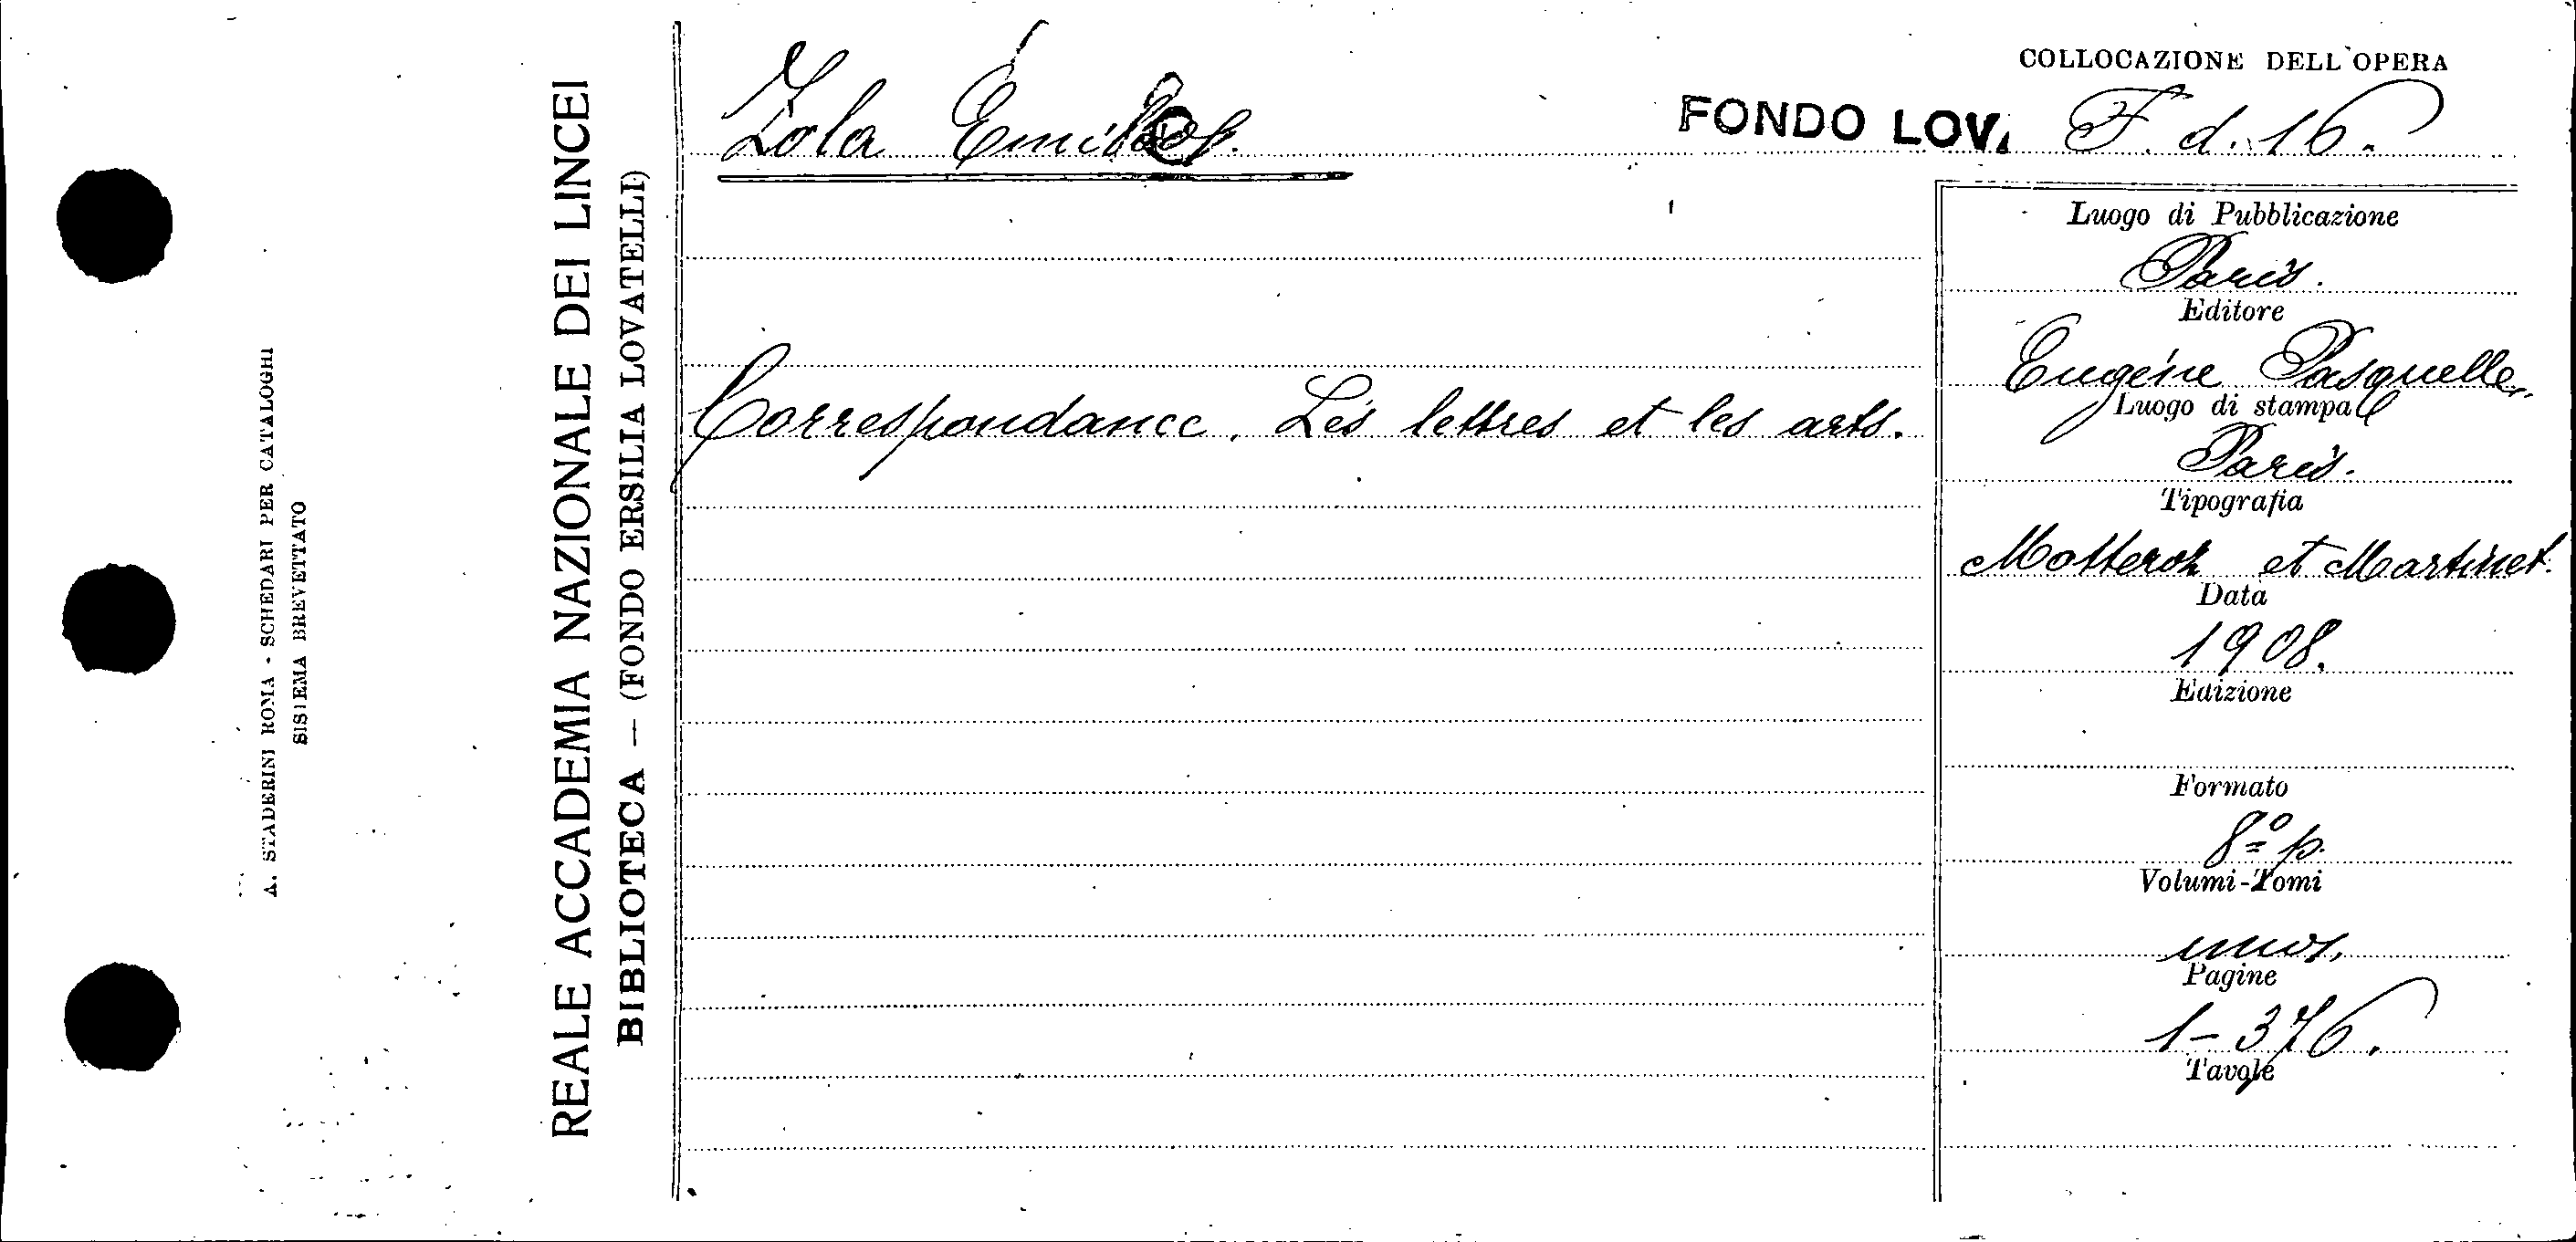 A. STADERINI ROMA - SCHEDARI PER CATALOGHI
SISTEMA BREVETTATO
REALE ACCADEMIA NAZIONALE DEI LINCEI
BIBLIOTECA — (FONDO ERSILIA LOVATELLI)
Zola
COLLOCAZIONE DELL'OPERA
FONDO LOV. F. d. 16.
Correspondance. Les lettres et les arts.
Luogo di Pubblicazione
Paris.
Editore
Eugéne Pasquelle.
Luogo di stampa
Paris.
Tipografia
Motteroz et Martinet.
Data
1908.
Edizione
Formato
8º p.
Volumi-Tomi
uno.
Pagine
1-376.
Tavole